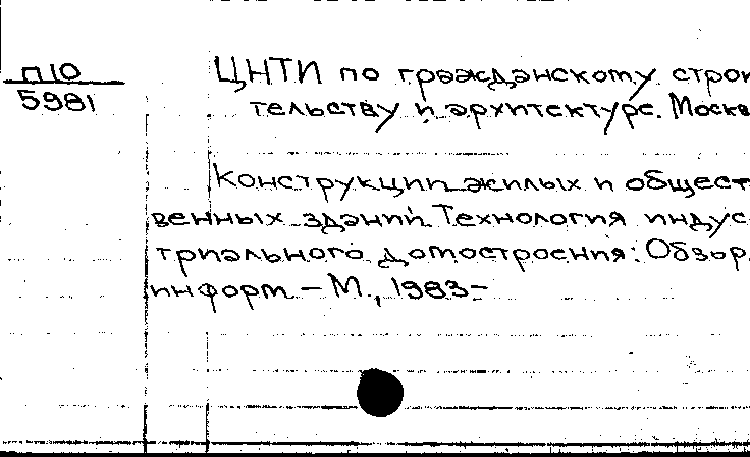 П10
5981
ЦНТИ по гражданскому строи
тельству и архитектуре. Москв
Конструкции жилых и общест
венных зданий. Технология индус-
триального домостроения: Обзор.
информ. – М., 1983–